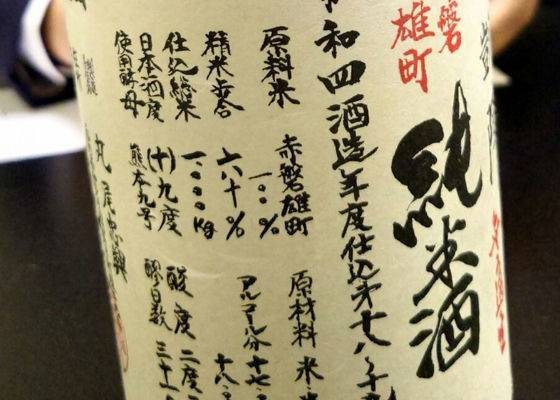 磐
雄町
純米酒
令和四酒造年度仕込第十八
原料米 赤磐雄町
一〇〇%
精米歩合 六十%
仕込総米 一〇〇〇kg
日本酒度 (十)九度
使用酵母 熊本九号
原材料 米・
アルコール分 十七・
十八・
酸度 二度
醪日数 三十